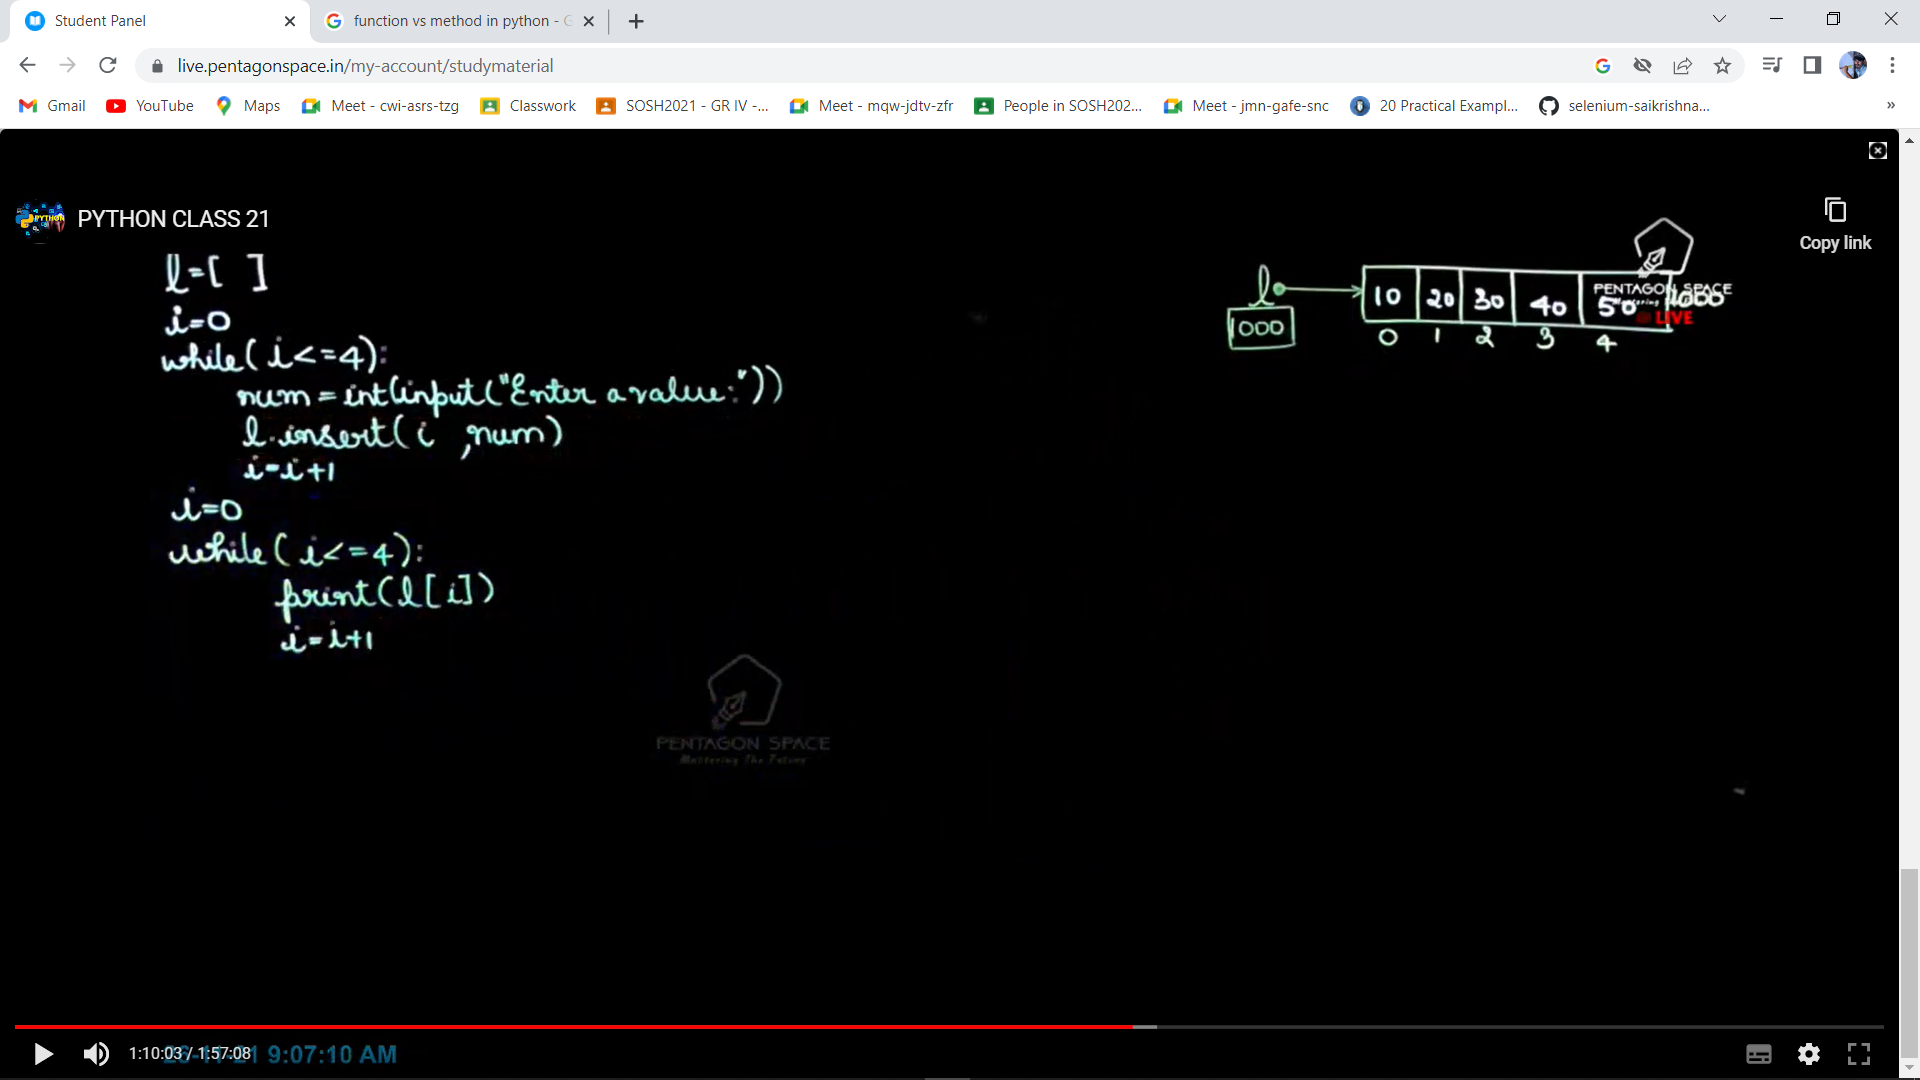 Student Panel
function vs method in python - G
live.pentagonspace.in/my-account/studymaterial
Gmail YouTube Maps Meet - cwi-asrs-tzg Classwork SOSH2021 - GR IV -... Meet - mqw-jdtv-zfr People in SOSH202... Meet - jmn-gafe-snc 20 Practical Exampl... selenium-saikrishna... »
PYTHON CLASS 21
Copy link
l=[ ]
i=0
while(i<=4):
num=int(input("Enter a value:"))
l.insert(i ,num)
i=i+1
i=0
while(i<=4):
print(l[i])
i=i+1
l
1000
10 20 30 40 50 1000
0 1 2 3 4
PENTAGON SPACE
LIVE
PENTAGON SPACE
Mastering The Future
1:10:03 / 1:57:08
9:07:10 AM